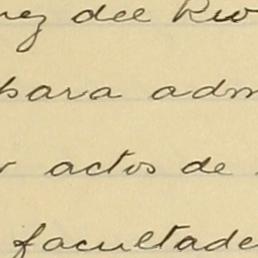 ez del Rio
para adm
actos de
facultade